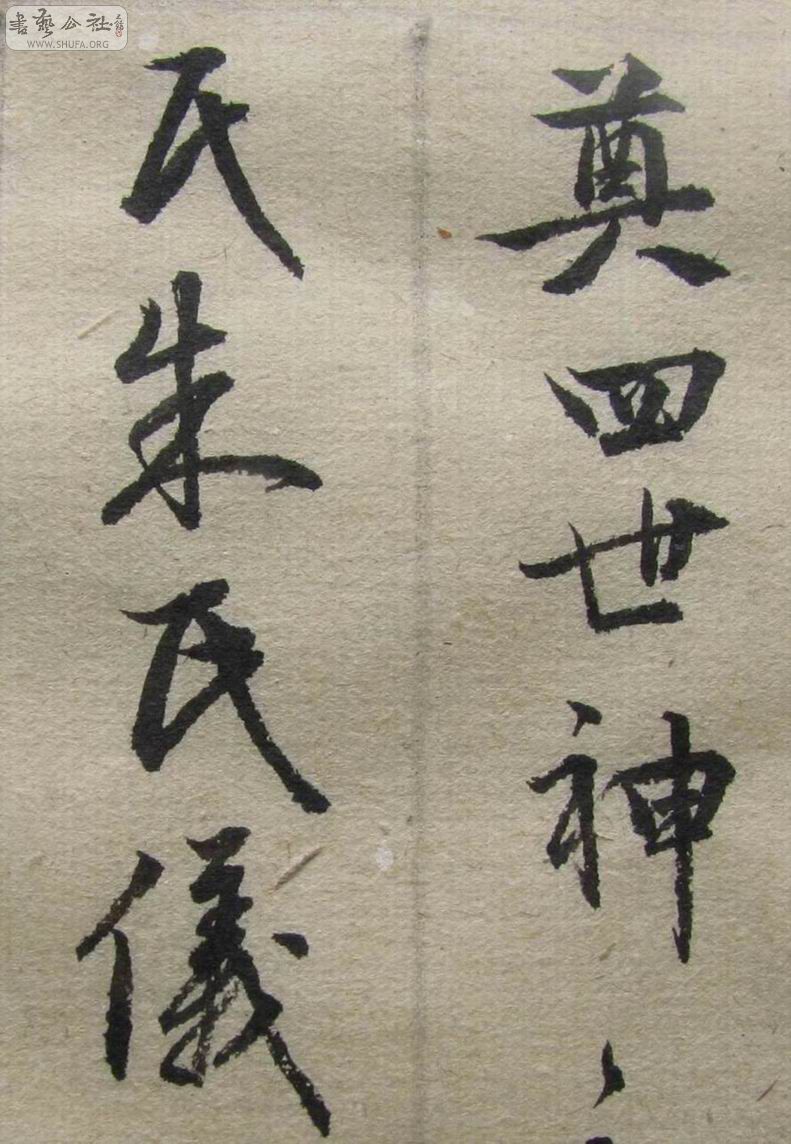 奠四世神
氏朱氏儀
書藝公社
WWW.SHUFA.ORG